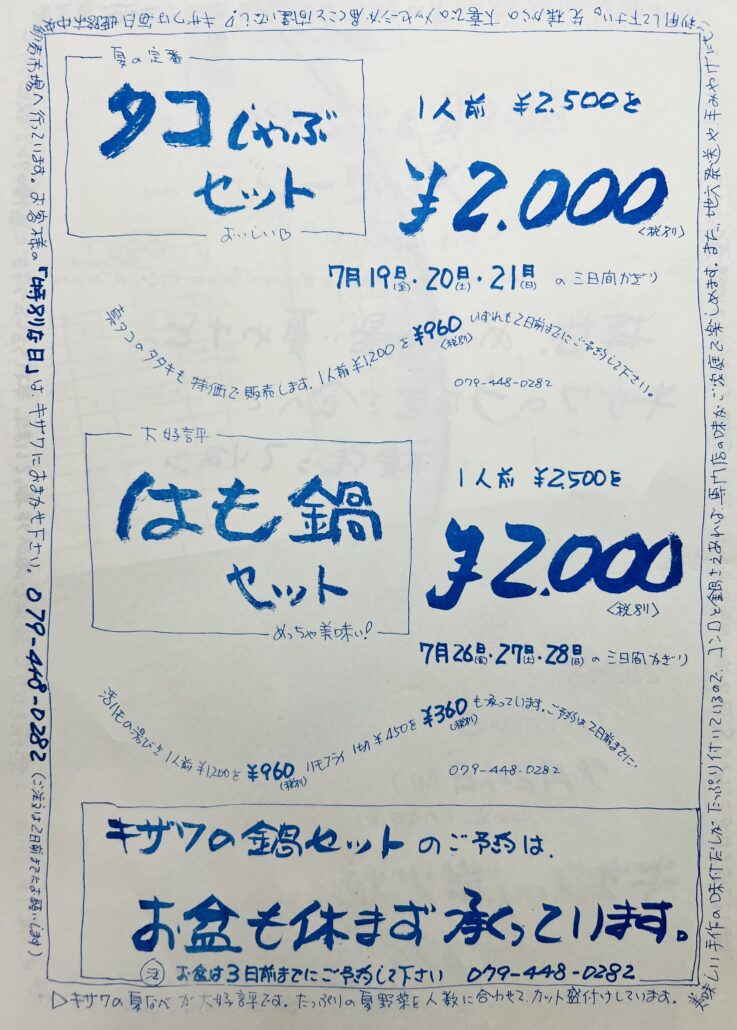 夏の定番
タコしゃぶ
セット
おいしい♡
1人前 ¥2,500を
¥2.000
<税別>
7月19日(金)・20日(土)・21日(日) の三日間かぎり
真タコのタタキも特価で販売します。1人前¥1,200を¥960(税別) いずれも2日前までにご予約して下さい。
079-448-0282
大好評
はも鍋
セット
めっちゃ美味い!
1人前 ¥2,500を
¥2.000
<税別>
7月26日(金)・27日(土)・28日(日) の三日間かぎり
活ハモの湯びき 1人前¥1200を¥960(税別) ハモフライ 1切¥450を¥360(税別)も承っています。ご予約は2日前までに。
079-448-0282
キザワの鍋セットのご予約は、
お盆も休まず承っています。
注 お盆は3日前までにご予約して下さい 079-448-0282
▷キザワの夏なべが大好評です。たっぷりの夏野菜を人数に合わせて、カット盛付けしています。
美味しい手作の味付だしがたっぷり付いているので、コンロと鍋さえあれば専門店の味がご家庭で楽しめます。また、地方発送や手みやげにも
ご利用して下さい。先様からの大喜びのメッセージが届くこと間違いなし!キザワは毎日姫路市中央
卸売市場へ行っています。お客様の「特別な日」は、キザワにおまかせ下さい。079-448-0282(ご注文は2日前までにお願いします)